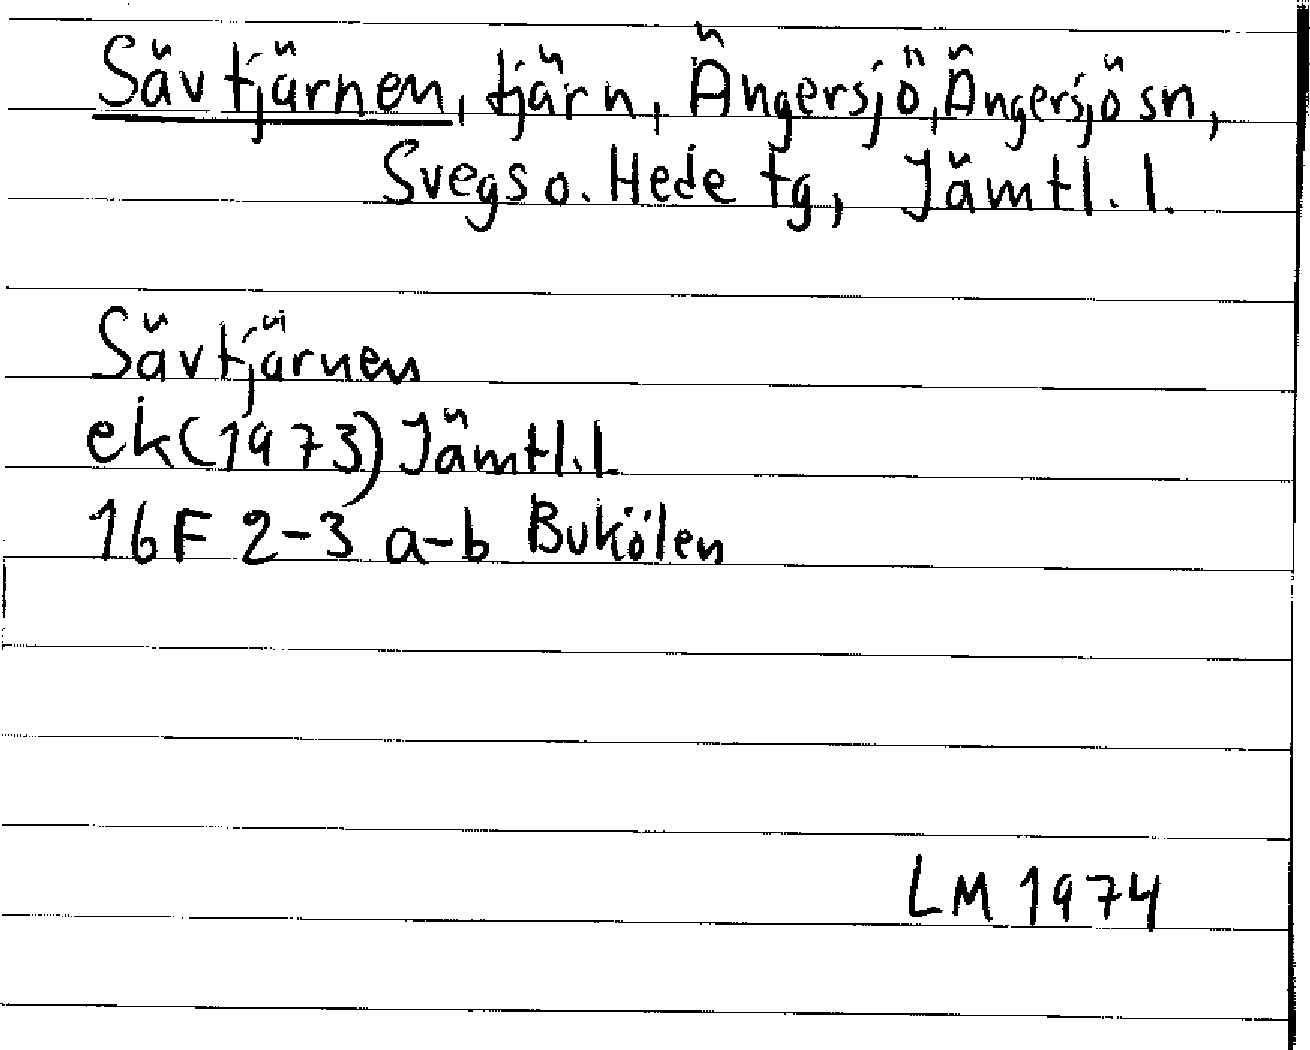 Sävtjärnen, tjärn, Ängersjö, Ängersjö sn,
Svegs o. Hede tg, Jämtl. l.
Sävtjärnen
ek (1973) Jämtl. l.
16F 2-3 a-b Bukölen
LM 1974